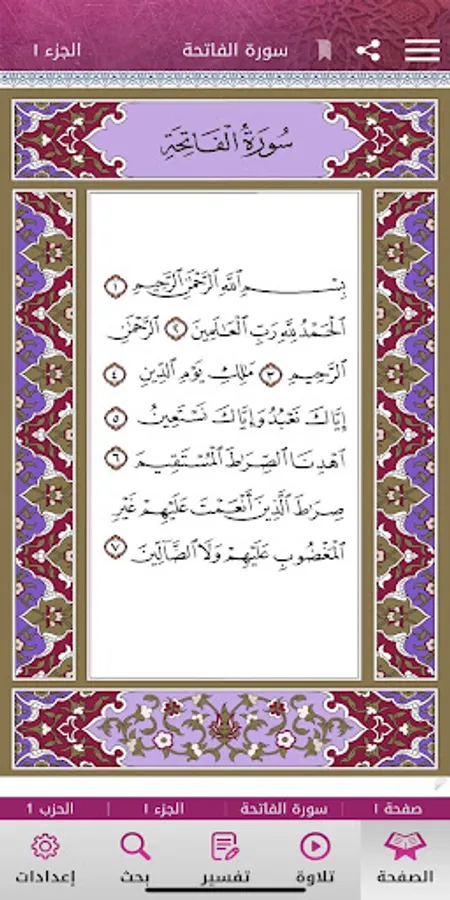 سورة الفاتحة الجزء ١
سُورَةُ الْفَاتِحَةِ
بِسْمِ اللَّهِ الرَّحْمَٰنِ الرَّحِيمِ ١
الْحَمْدُ لِلَّهِ رَبِّ الْعَالَمِينَ ٢ الرَّحْمَٰنِ
الرَّحِيمِ ٣ مَالِكِ يَوْمِ الدِّينِ ٤
إِيَّاكَ نَعْبُدُ وَإِيَّاكَ نَسْتَعِينُ ٥
اهْدِنَا الصِّرَاطَ الْمُسْتَقِيمَ ٦
صِرَاطَ الَّذِينَ أَنْعَمْتَ عَلَيْهِمْ غَيْرِ
الْمَغْضُوبِ عَلَيْهِمْ وَلَا الضَّالِّينَ ٧
صفحة ١ | سورة الفاتحة | الجزء ١ | الحزب 1
الصفحة تلاوة تفسير بحث إعدادات